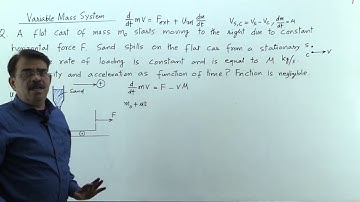 Variable Mass System d/dt mV = Fext + Urel dm/dt Vs,c = Vs - Vc, dm/dt = M
Q. A flat cart of mass m₀ starts moving to the right due to constant
horizontal force F. Sand spills on the flat car from a stationary S.
rate of loading is constant and is equal to M kg/s.
city and acceleration as function of time? Friction is negligible.
d/dt mV = F - VM
Sand
m₀ +
F
C → V